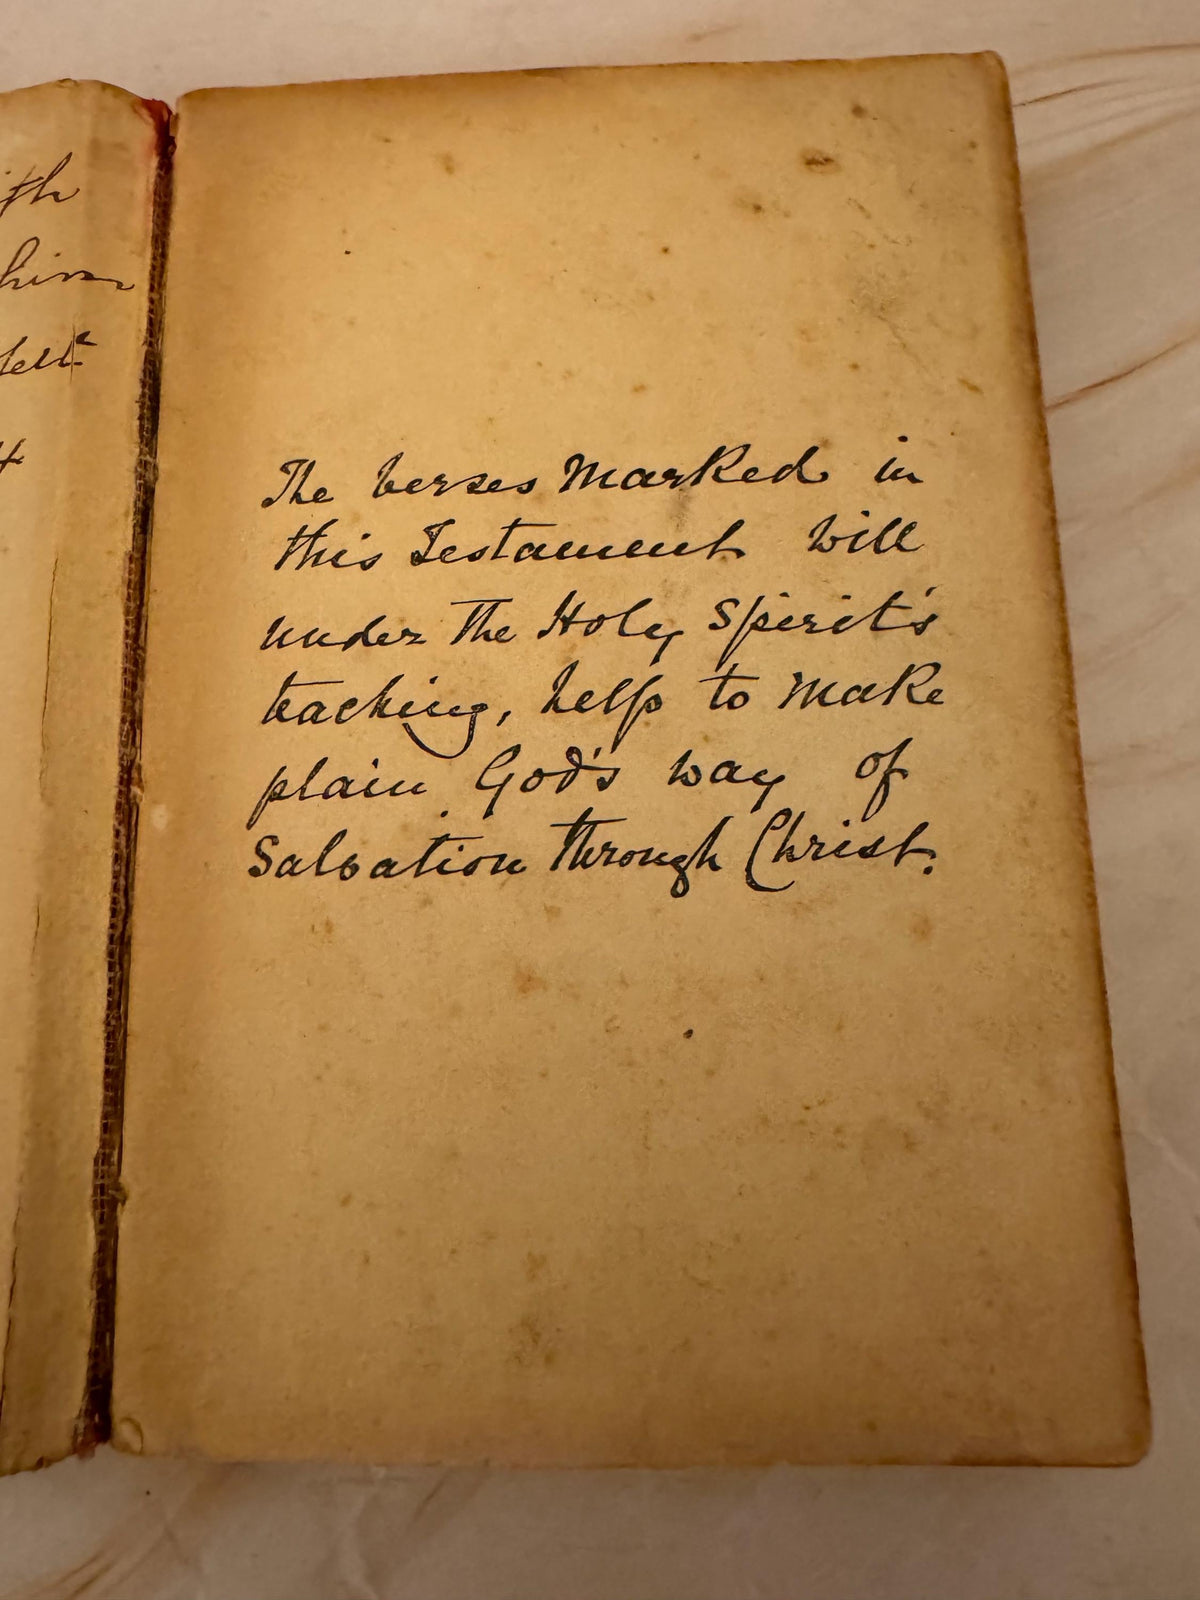 him
The verses Marked in
this Testament will
under The Holy Spirit's
teaching, help to Make
plain God's way of
Salvation Through Christ.